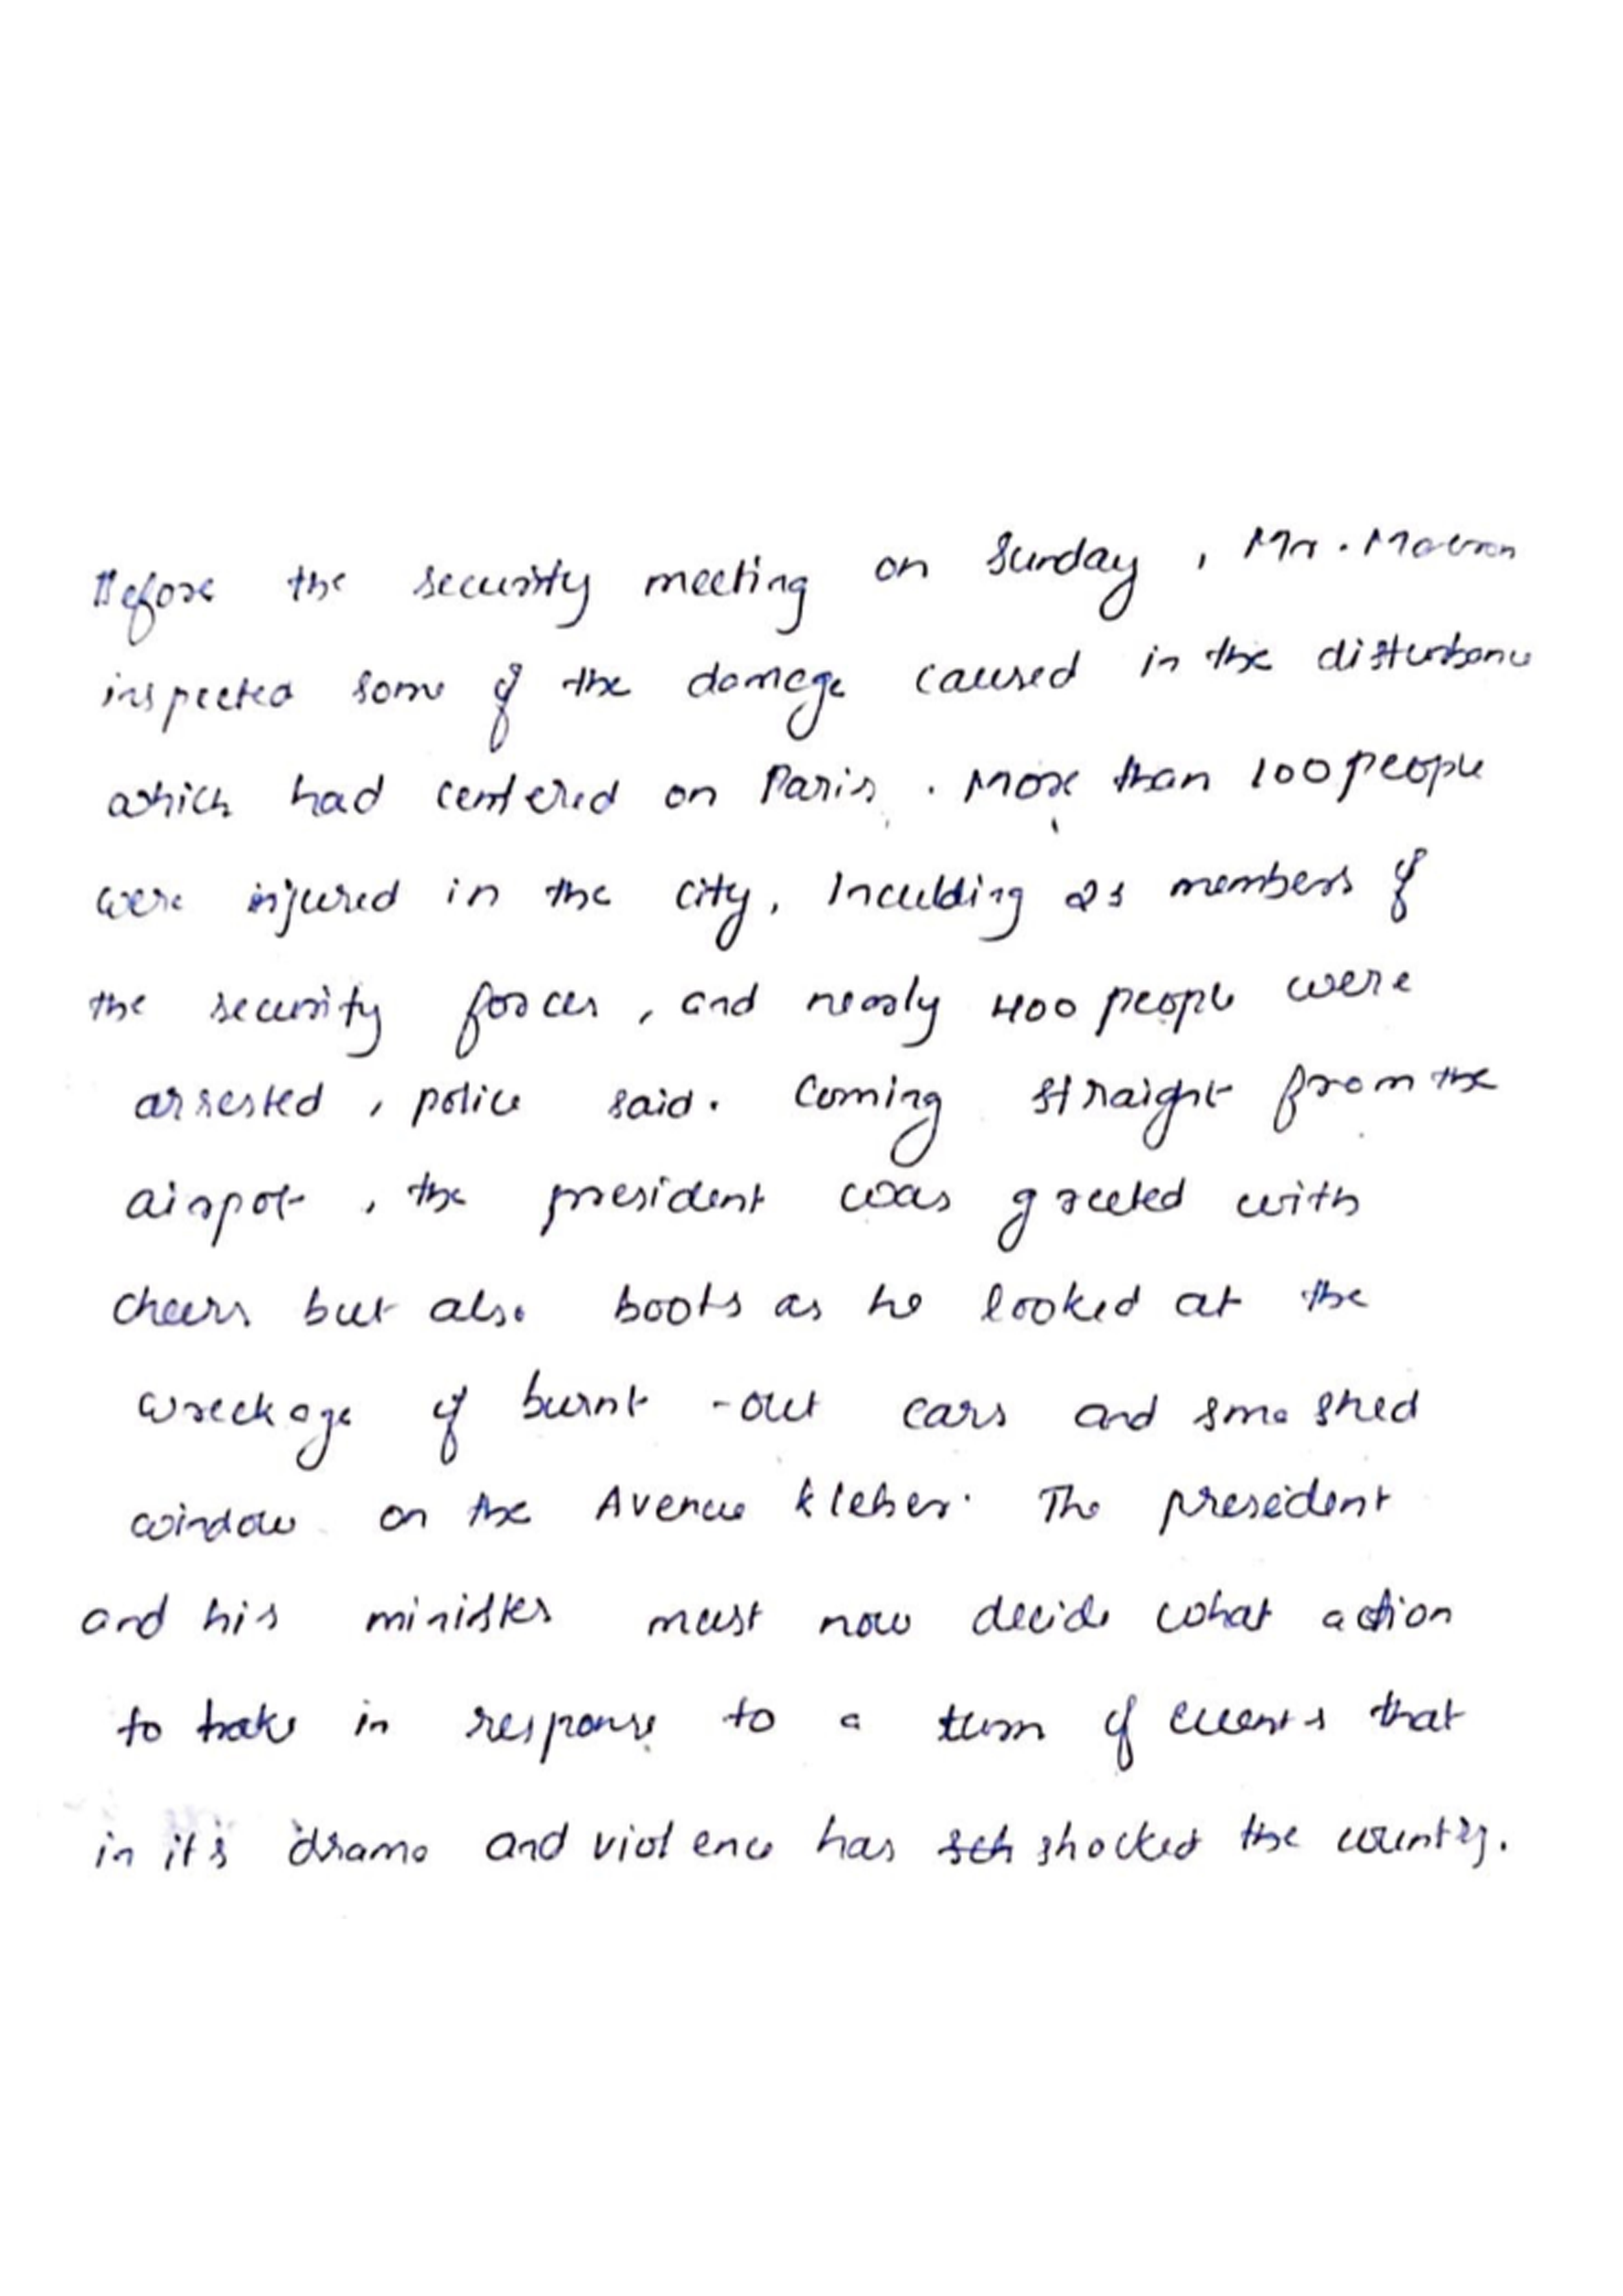 Before the security meeting on Sunday, Mr. Macron
inspected some of the damage caused in the disturbance
which had centered on Paris. More than 100 people
were injured in the city, Inculding 23 members of
the security forces, and nearly 400 people were
arrested, police said. Coming straight from the
airpot, the president was greeted with
cheers but also boots as he looked at the
wreckage of burnt -out cars and smashed
window on the Avenue Kleber. The president
and his minister must now decide what action
to take in response to a turn of events that
in it's drama and violence has shocked the country.